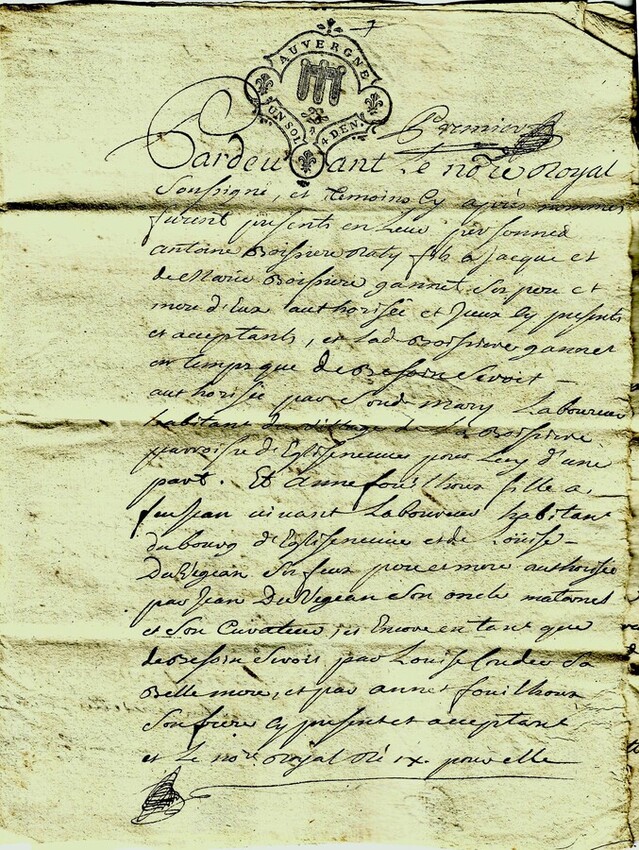 AUVERGNE
UN SOL
4 DEN.
Premier
Pardevant Le no.re Royal
Soussigné, et temoins Cy après nommes
furent présents en Leur personnes
antoine Boissiere Naty fils a Jacque et
de Marie Boissiere gannet Ses pere et
mere d'Eux authorisée et Jceux Cy presents
et acceptants, et Lad. Boissiere gannet
en temps que de Besoin Seroit
authorisée par Sond. Mary Laboureur
habitant du village de La Boissiere
parroisse d'Egliseneuve pour Luy d'une
part. Et anne fouilhoux fille a
feu Jean vivant Laboureur habitant
du bourg d'Egliseneuve et de Louise
DuVegean Ses feux pere et mere authorisée
par Jean DuVegean Son oncle maternel
et Son Curateur, et Encore en tant que
de Besoin Seroit par Louise Coudei Sa
Belle mere, et par annet fouilhoux
Son frere Cy present et acceptant
et Le no.re Royal pour elle